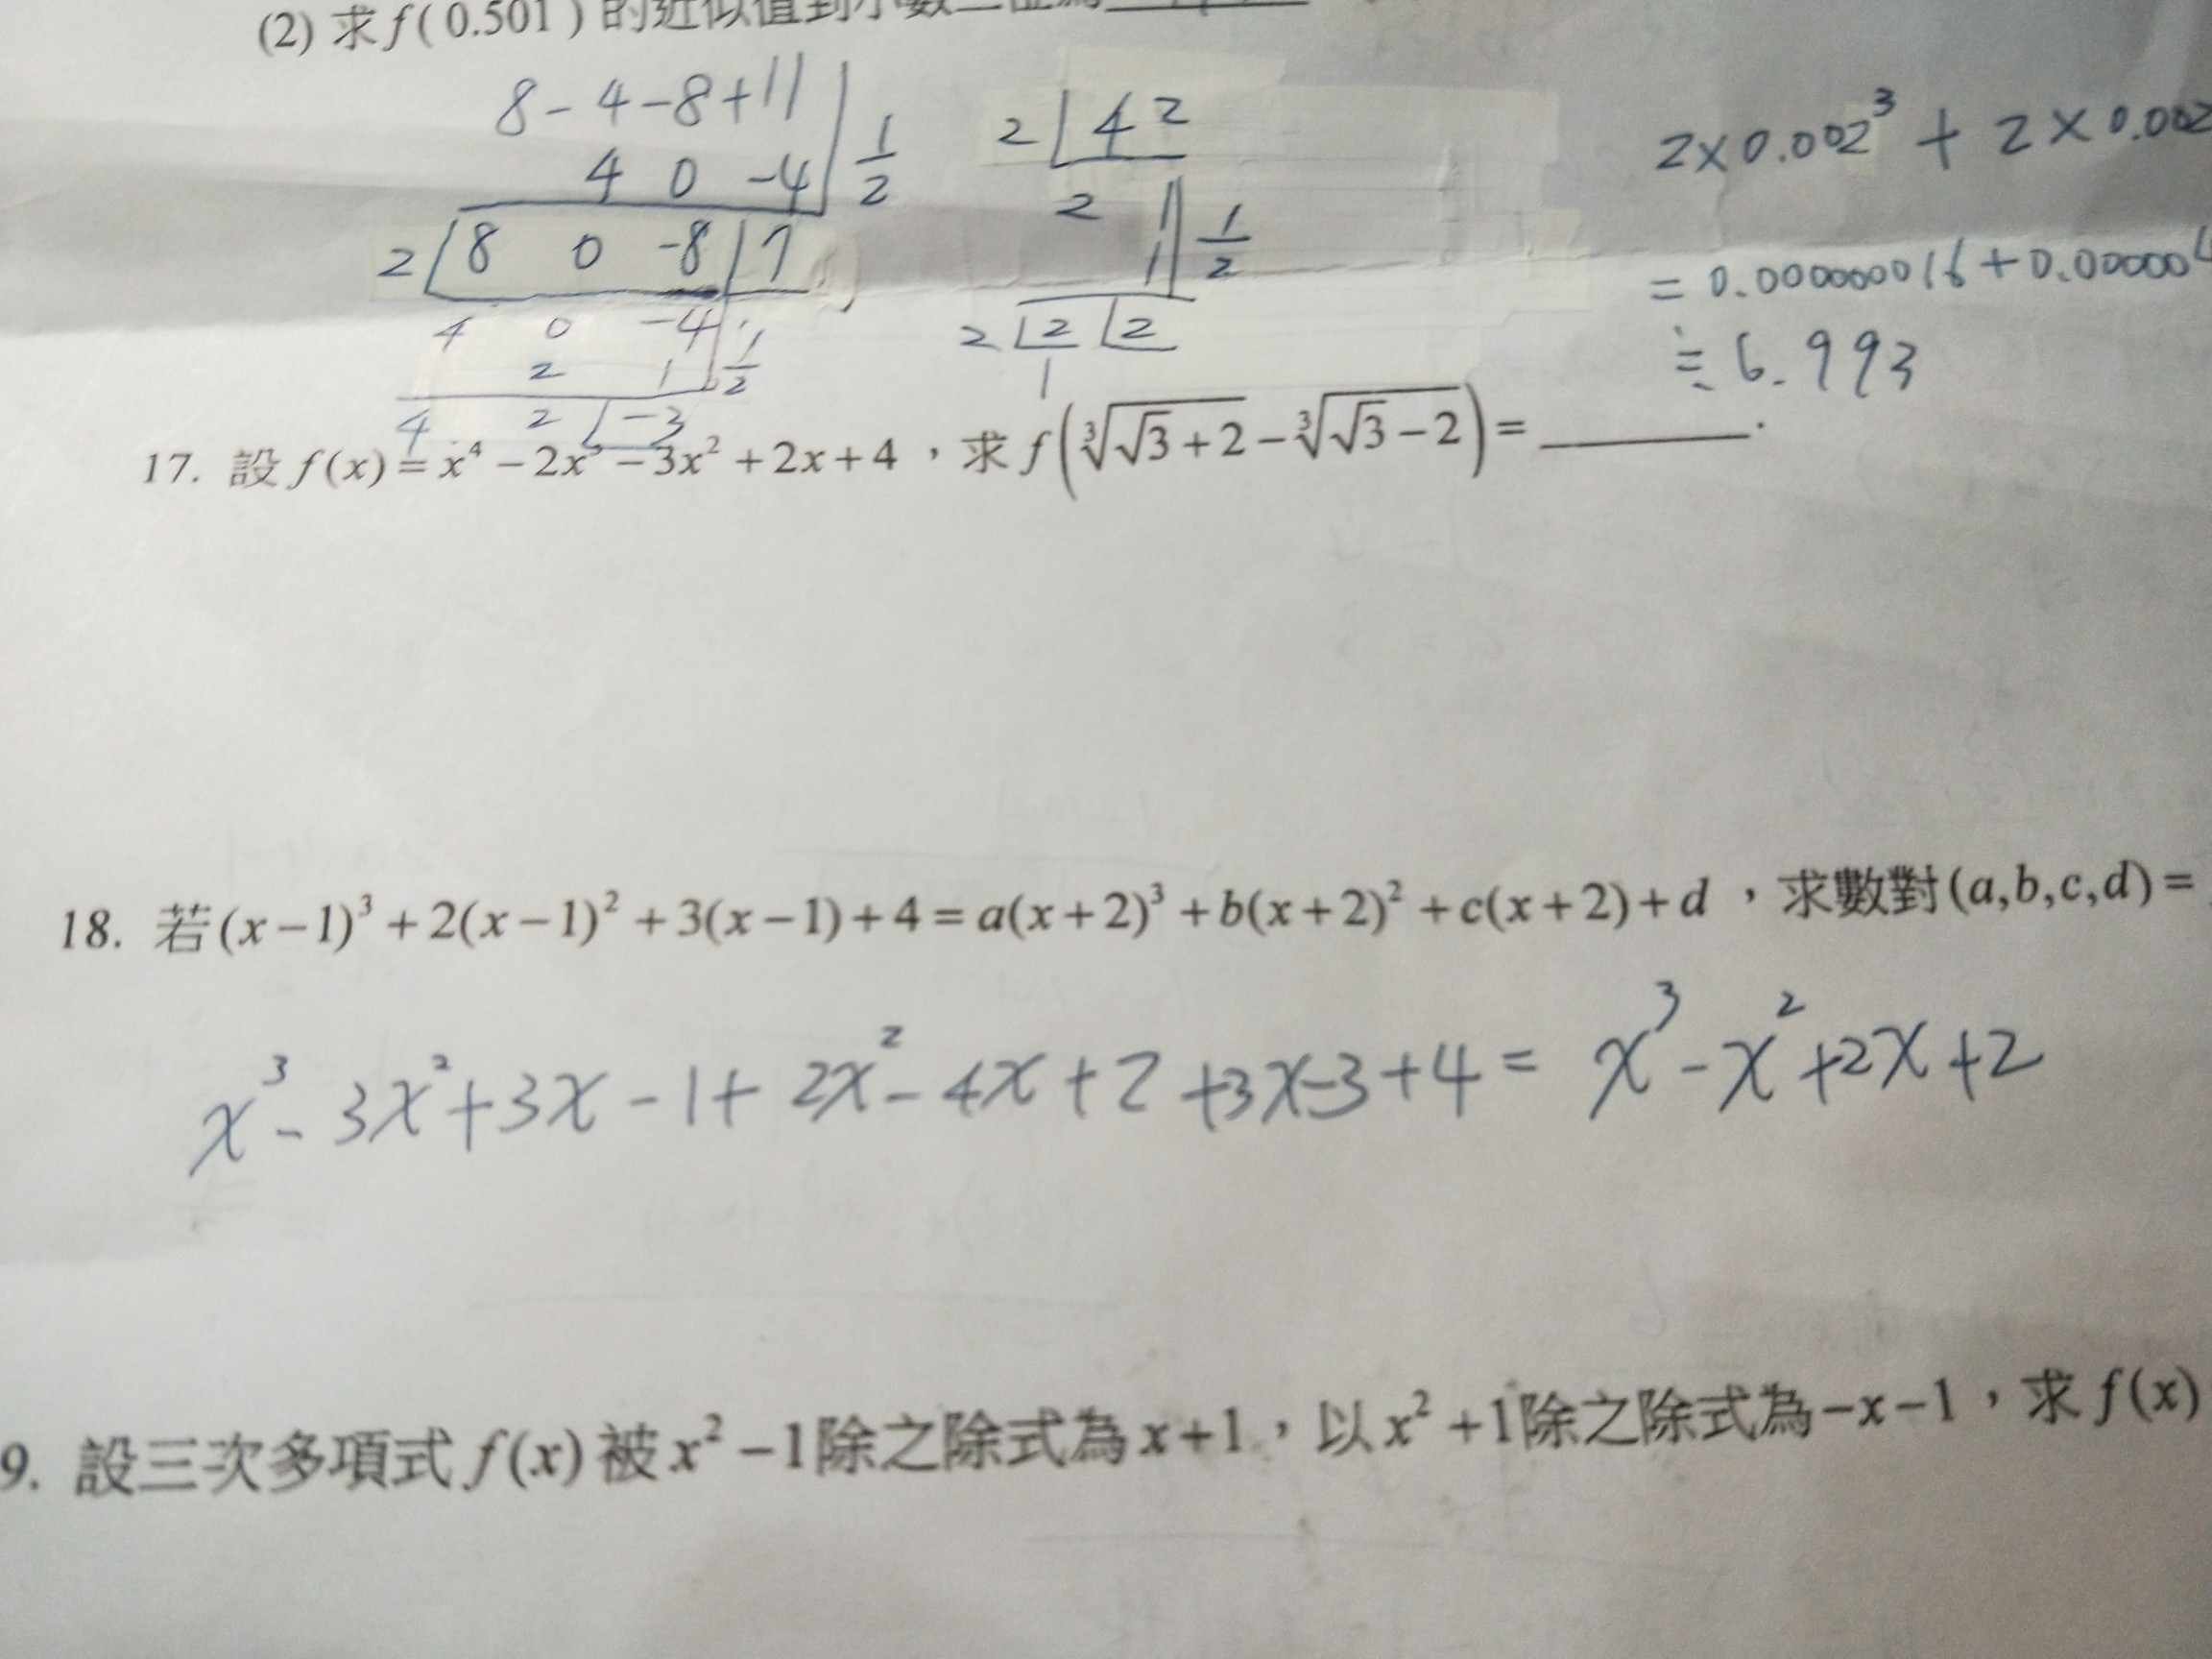 (2) 求f(0.501)的近似值到小數三位為
8-4-8+11
4 0 -4 | 1/2
2 | 8 0 -8 | 7
4 0 -4
2 1 | 1/2
4 2 | -3
2 | 4 2
2 1 | 1/2
1
2 | 2 | 2
1
2×0.002³ + 2×0.002
= 0.000000016+0.000004
≒ 6.993
17. 設 f(x) = x⁴ − 2x³ − 3x² + 2x + 4,求 f(∛(√3+2) − ∛(√3−2)) = ______.
18. 若(x−1)³ + 2(x−1)² + 3(x−1) + 4 = a(x+2)³ + b(x+2)² + c(x+2) + d,求數對(a,b,c,d) =
x³ - 3x² + 3x - 1 + 2x² - 4x + 2 + 3x - 3 + 4 = x³ - x² + 2x + 2
9. 設三次多項式 f(x) 被 x² − 1除之除式為 x+1,以 x² +1除之除式為 −x−1,求 f(x)